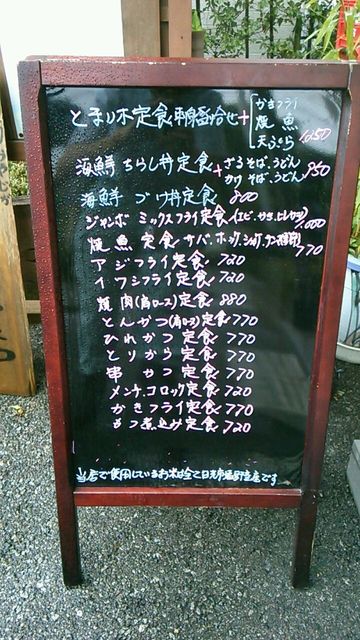 とまり木定食 刺身盛合せ+[かきフライ
焼魚
天ぷら 1,050
海鮮 ちらし丼定食+ざるそば、うどん
かけそば、うどん 950
海鮮 づけ丼定食 800
ジャンボ ミックスフライ定食(エビ、かき、ヒレカツ) 1,000
焼魚 定食 サバ、ホッケ 770
アジフライ定食 720
イワシフライ定食 720
焼肉(肩ロース)定食 880
とんかつ(肩ロース)定食 770
ひれかつ 定食 770
とりから 定食 770
串かつ 定食 770
メンチ、コロッケ 定食 720
かきフライ定食 770
もつ煮込み定食 720
当店で使用しているお米は全て日光市塩野室産です